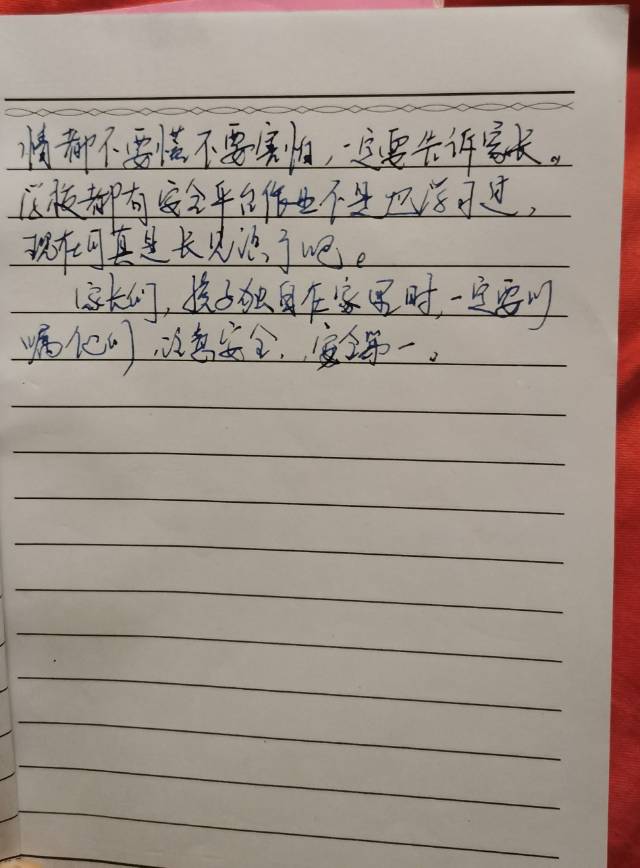 情都不要慌不要害怕，一定要告诉家长。
学校都有安全平台作业不是也学习过，
现在可真是长见识了吧。
家长们，孩子独自在家里时，一定要叮
嘱他们，注意安全，安全第一。